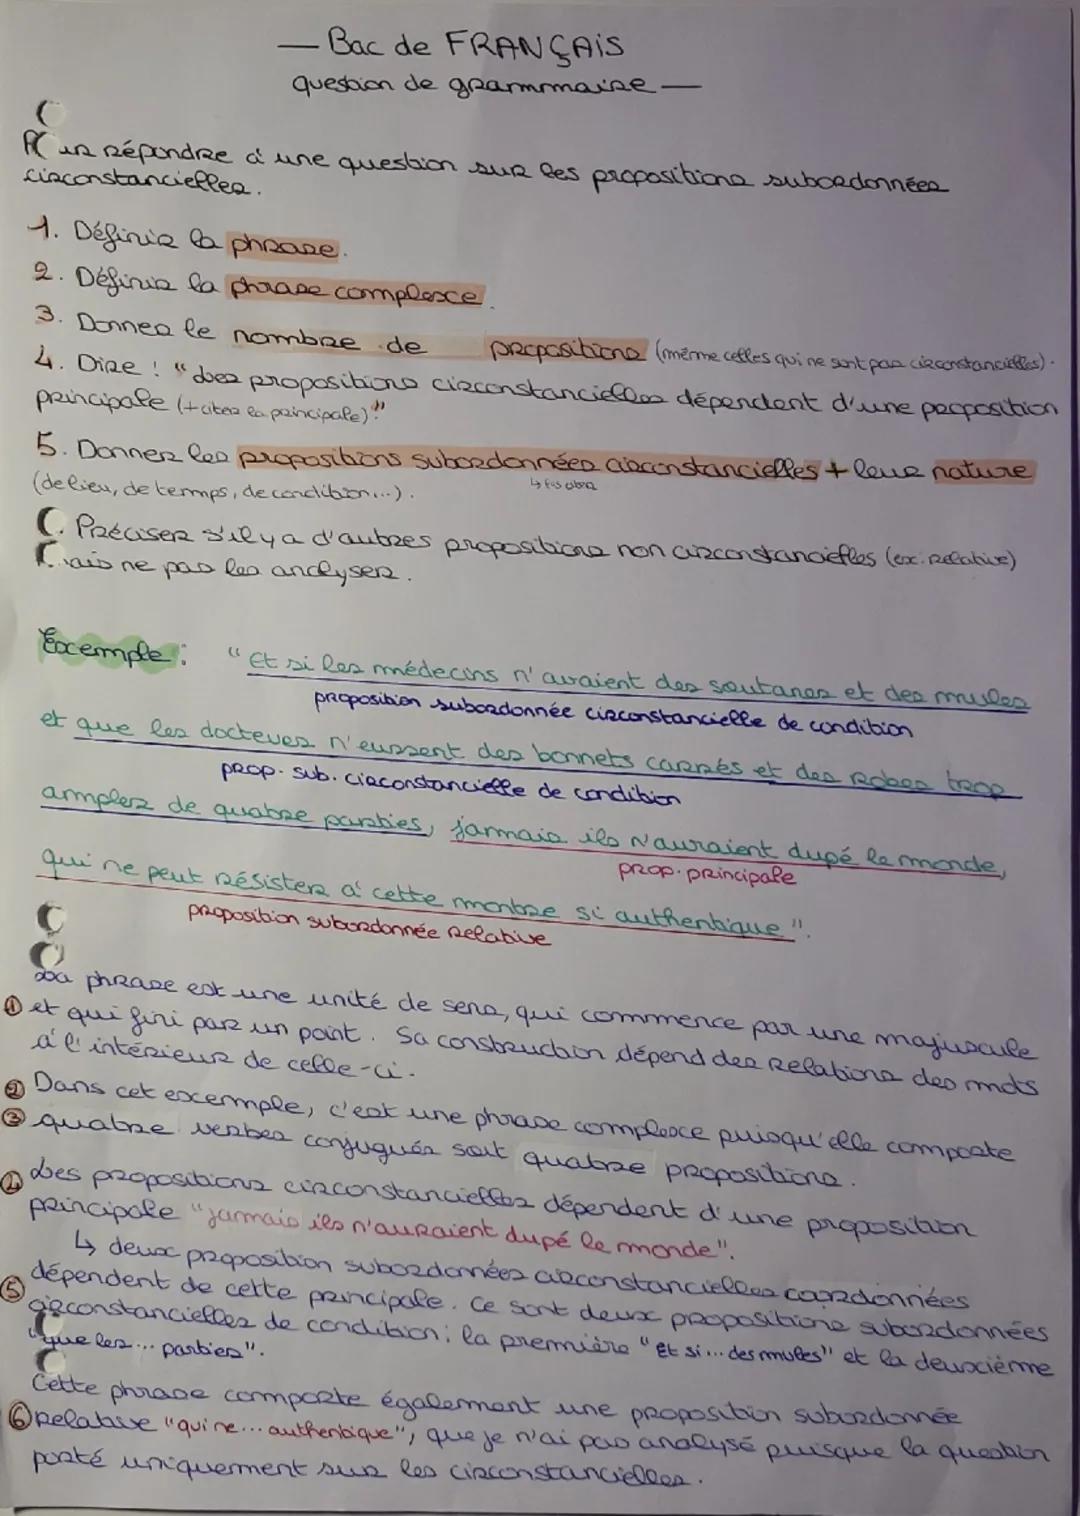 — Bac de FRANÇAIS
question de grammaire —
Pour répondre à une question sur les propositions subordonnées
circonstancielles.
1. Définir la phrase.
2. Définir la phrase complexe.
3. Donner le nombre de propositions (même celles qui ne sont pas circonstancielles).
4. Dire : "Les propositions circonstancielles dépendent d'une proposition
principale (+ citer la principale)."
5. Donner les propositions subordonnées circonstancielles + leur nature
(de lieu, de temps, de condition...).
Préciser s'il y a d'autres propositions non circonstancielles (ex: relative)
mais ne pas les analyser.
Exemple : "Et si les médecins n'avaient des soutanes et des mules
proposition subordonnée circonstancielle de condition
et que les docteurs n'eussent des bonnets carrés et des robes trop
prop. sub. circonstancielle de condition
amples de quatre parties, jamais ils n'auraient dupé le monde,
prop. principale
qui ne peut résister à cette montre si authentique".
proposition subordonnée relative
La phrase est une unité de sens, qui commence par une majuscule
① et qui fini par un point. Sa construction dépend des relations des mots
à l'intérieur de celle-ci.
② Dans cet exemple, c'est une phrase complexe puisqu'elle comporte
③ quatre verbes conjugués soit quatre propositions.
④ Les propositions circonstancielles dépendent d'une proposition
principale "jamais ils n'auraient dupé le monde".
↳ deux proposition subordonnées circonstancielles coordonnées
dépendent de cette principale. Ce sont deux propositions subordonnées
⑤ circonstancielles de condition : la première "Et si... des mules" et la deuxième
"que les... parties".
Cette phrase comporte également une proposition subordonnée
⑥ relative "qui ne... authentique", que je n'ai pas analysé puisque la question
porté uniquement sur les circonstancielles.